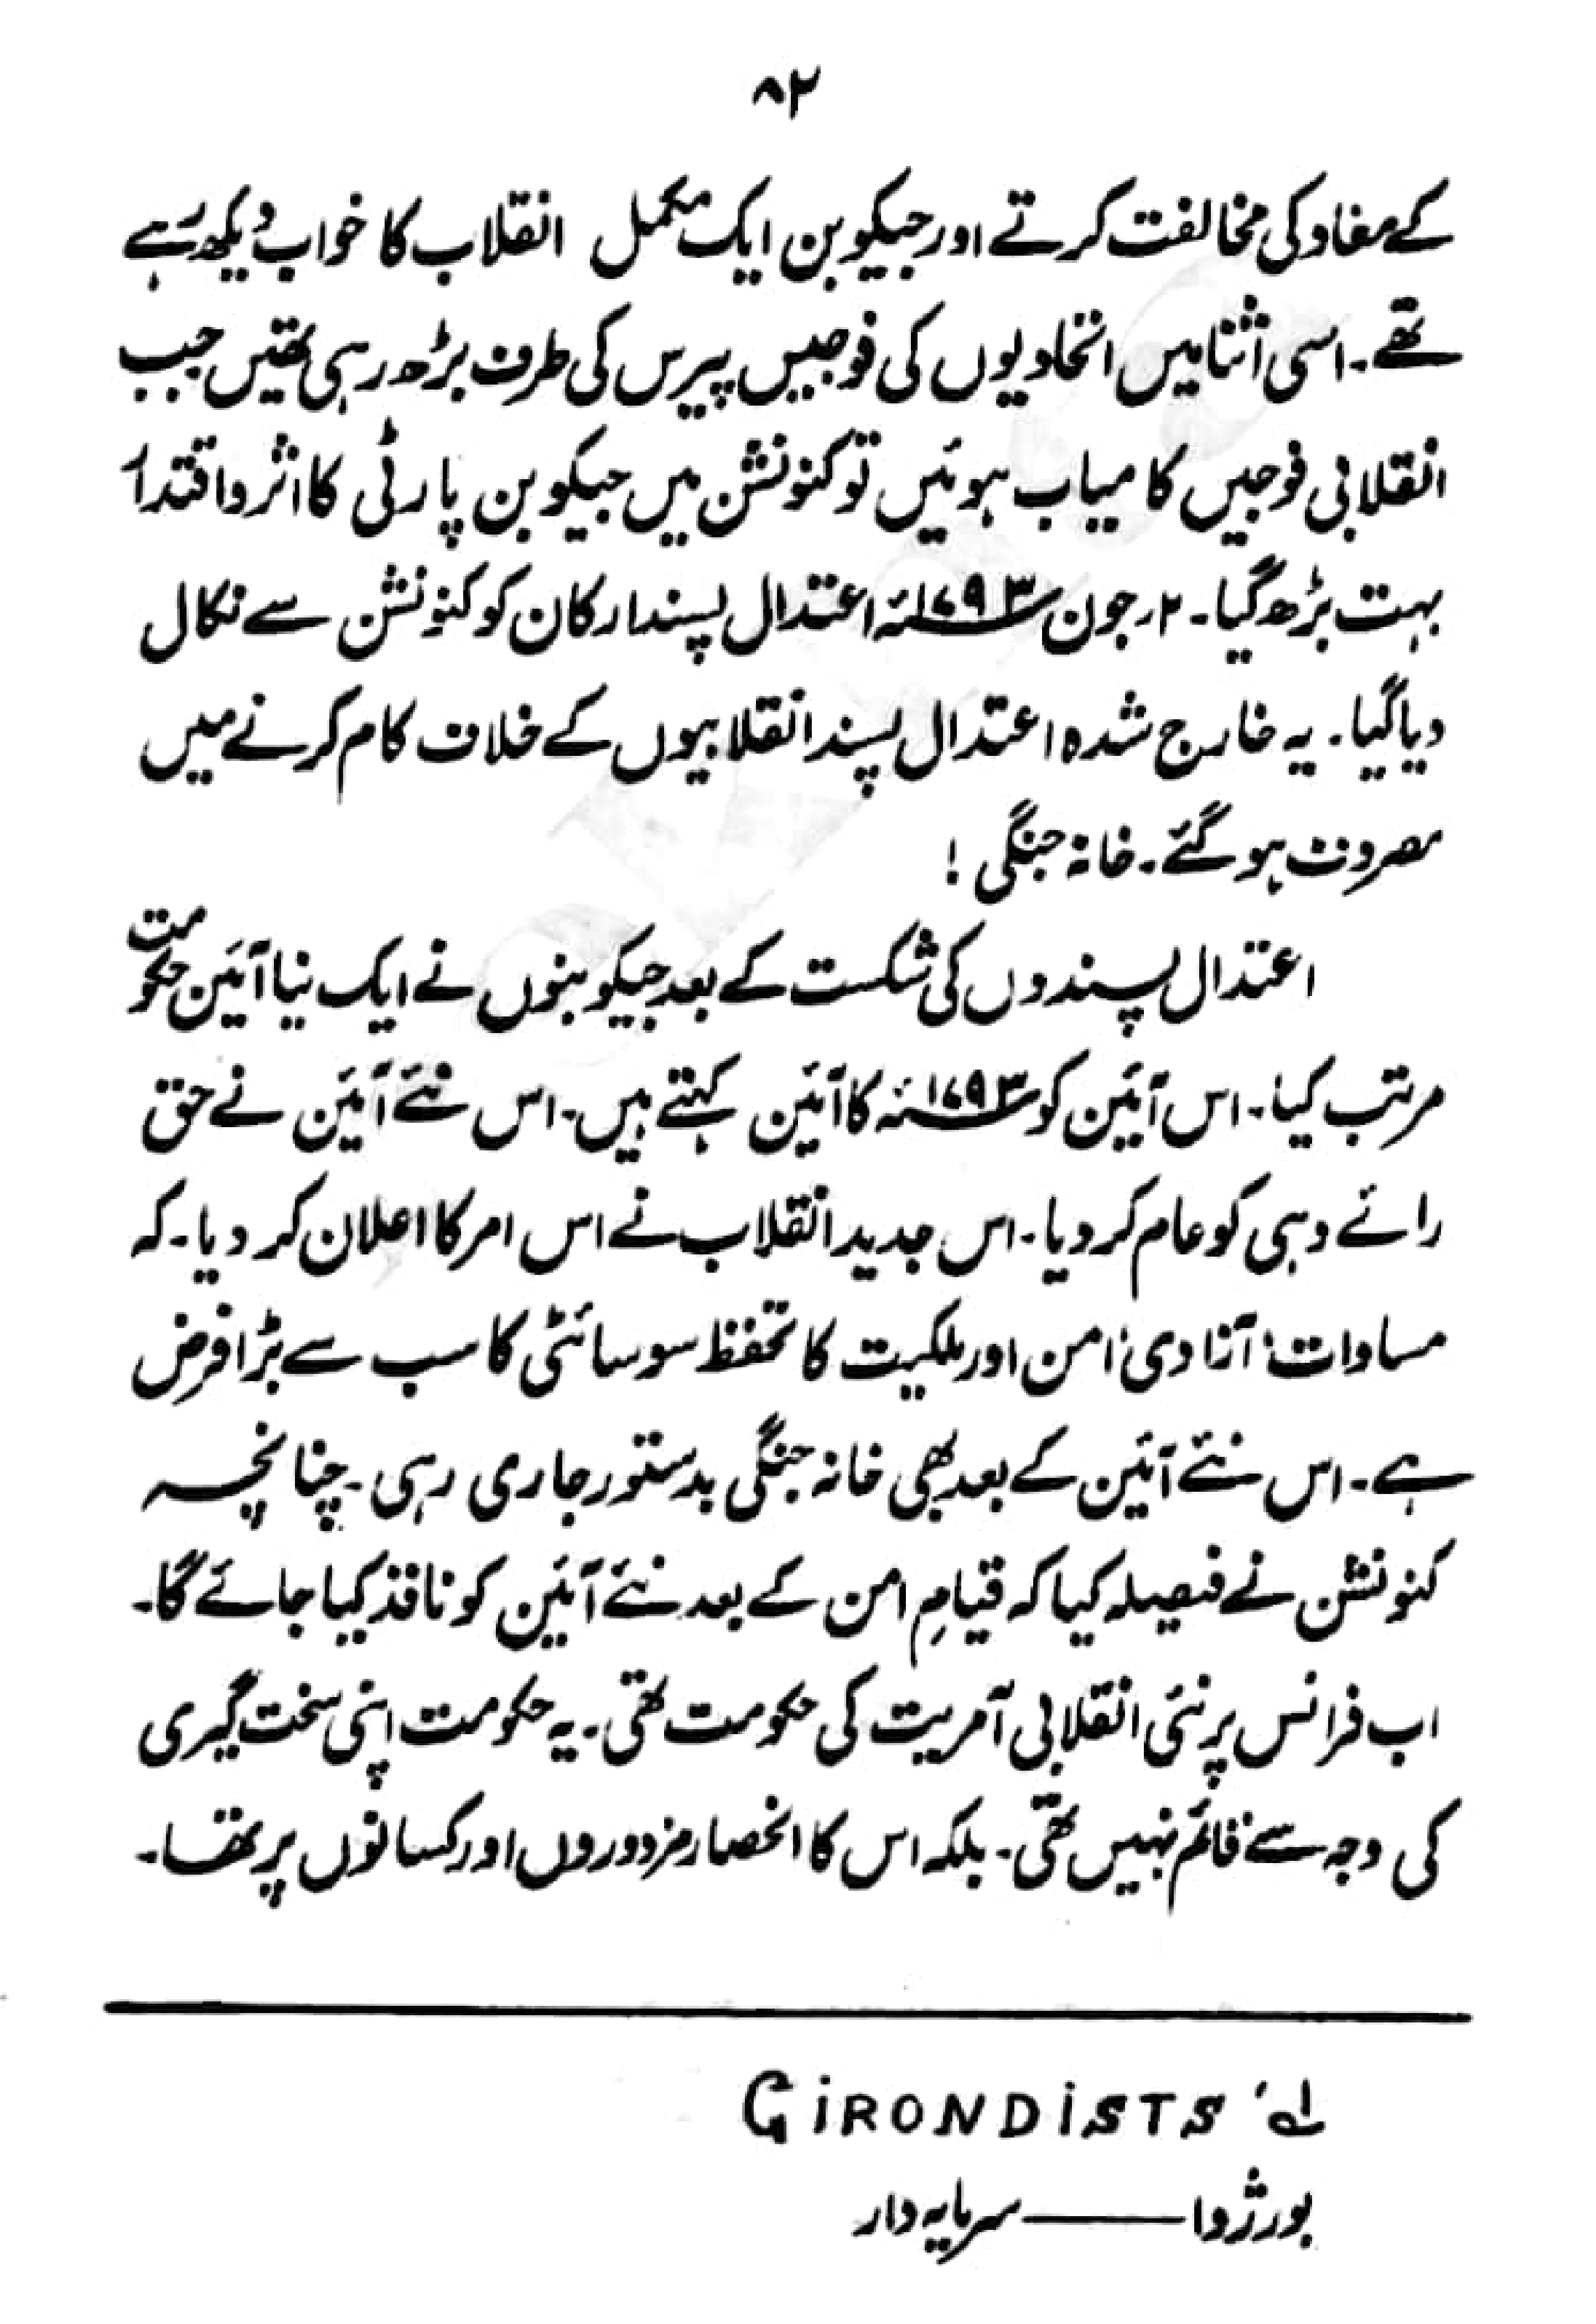 ۸۲
کے مفاد کی مخالفت کرتے اور جیکو بن ایک مکمل انقلاب کا خواب دیکھ رہے
تھے۔ اسی اثنا میں اتحادیوں کی فوجیں پیرس کی طرف بڑھ رہی تھیں جب
انقلابی فوجیں کامیاب ہوئیں تو کنونشن میں جیکو بن پارٹی کا اثر و اقتدار
بہت بڑھ گیا۔ ۲؍ جون ۱۷۹۳ء اعتدال پسند ارکان کو کنونشن سے نکال
دیا گیا۔ یہ خارج شدہ اعتدال پسند انقلابیوں کے خلاف کام کرنے میں
مصروف ہو گئے۔ خانہ جنگی !
اعتدال پسندوں کی شکست کے بعد جیکو بنوں نے ایک نیا آئین حکومت
مرتب کیا۔ اس آئین کو ۱۷۹۳ء کا آئین کہتے ہیں۔ اس نئے آئین نے حق
رائے دہی کو عام کر دیا۔ اس جدید انقلاب نے اس امر کا اعلان کر دیا۔ کہ
مساوات، آزادی، امن اور ملکیت کا تحفظ سوسائٹی کا سب سے بڑا فرض
ہے۔ اس نئے آئین کے بعد بھی خانہ جنگی بدستور جاری رہی۔ چنانچہ
کنونشن نے فیصلہ کیا کہ قیامِ امن کے بعد نئے آئین کو نافذ کیا جائے گا۔
اب فرانس پر نئی انقلابی آمریت کی حکومت تھی۔ یہ حکومت اپنی سخت گیری
کی وجہ سے قائم نہیں تھی۔ بلکہ اس کا انحصار مزدوروں اور کسانوں پر تھا۔
لہ، GiRONDiSTS
بورژوا —— سرمایہ دار